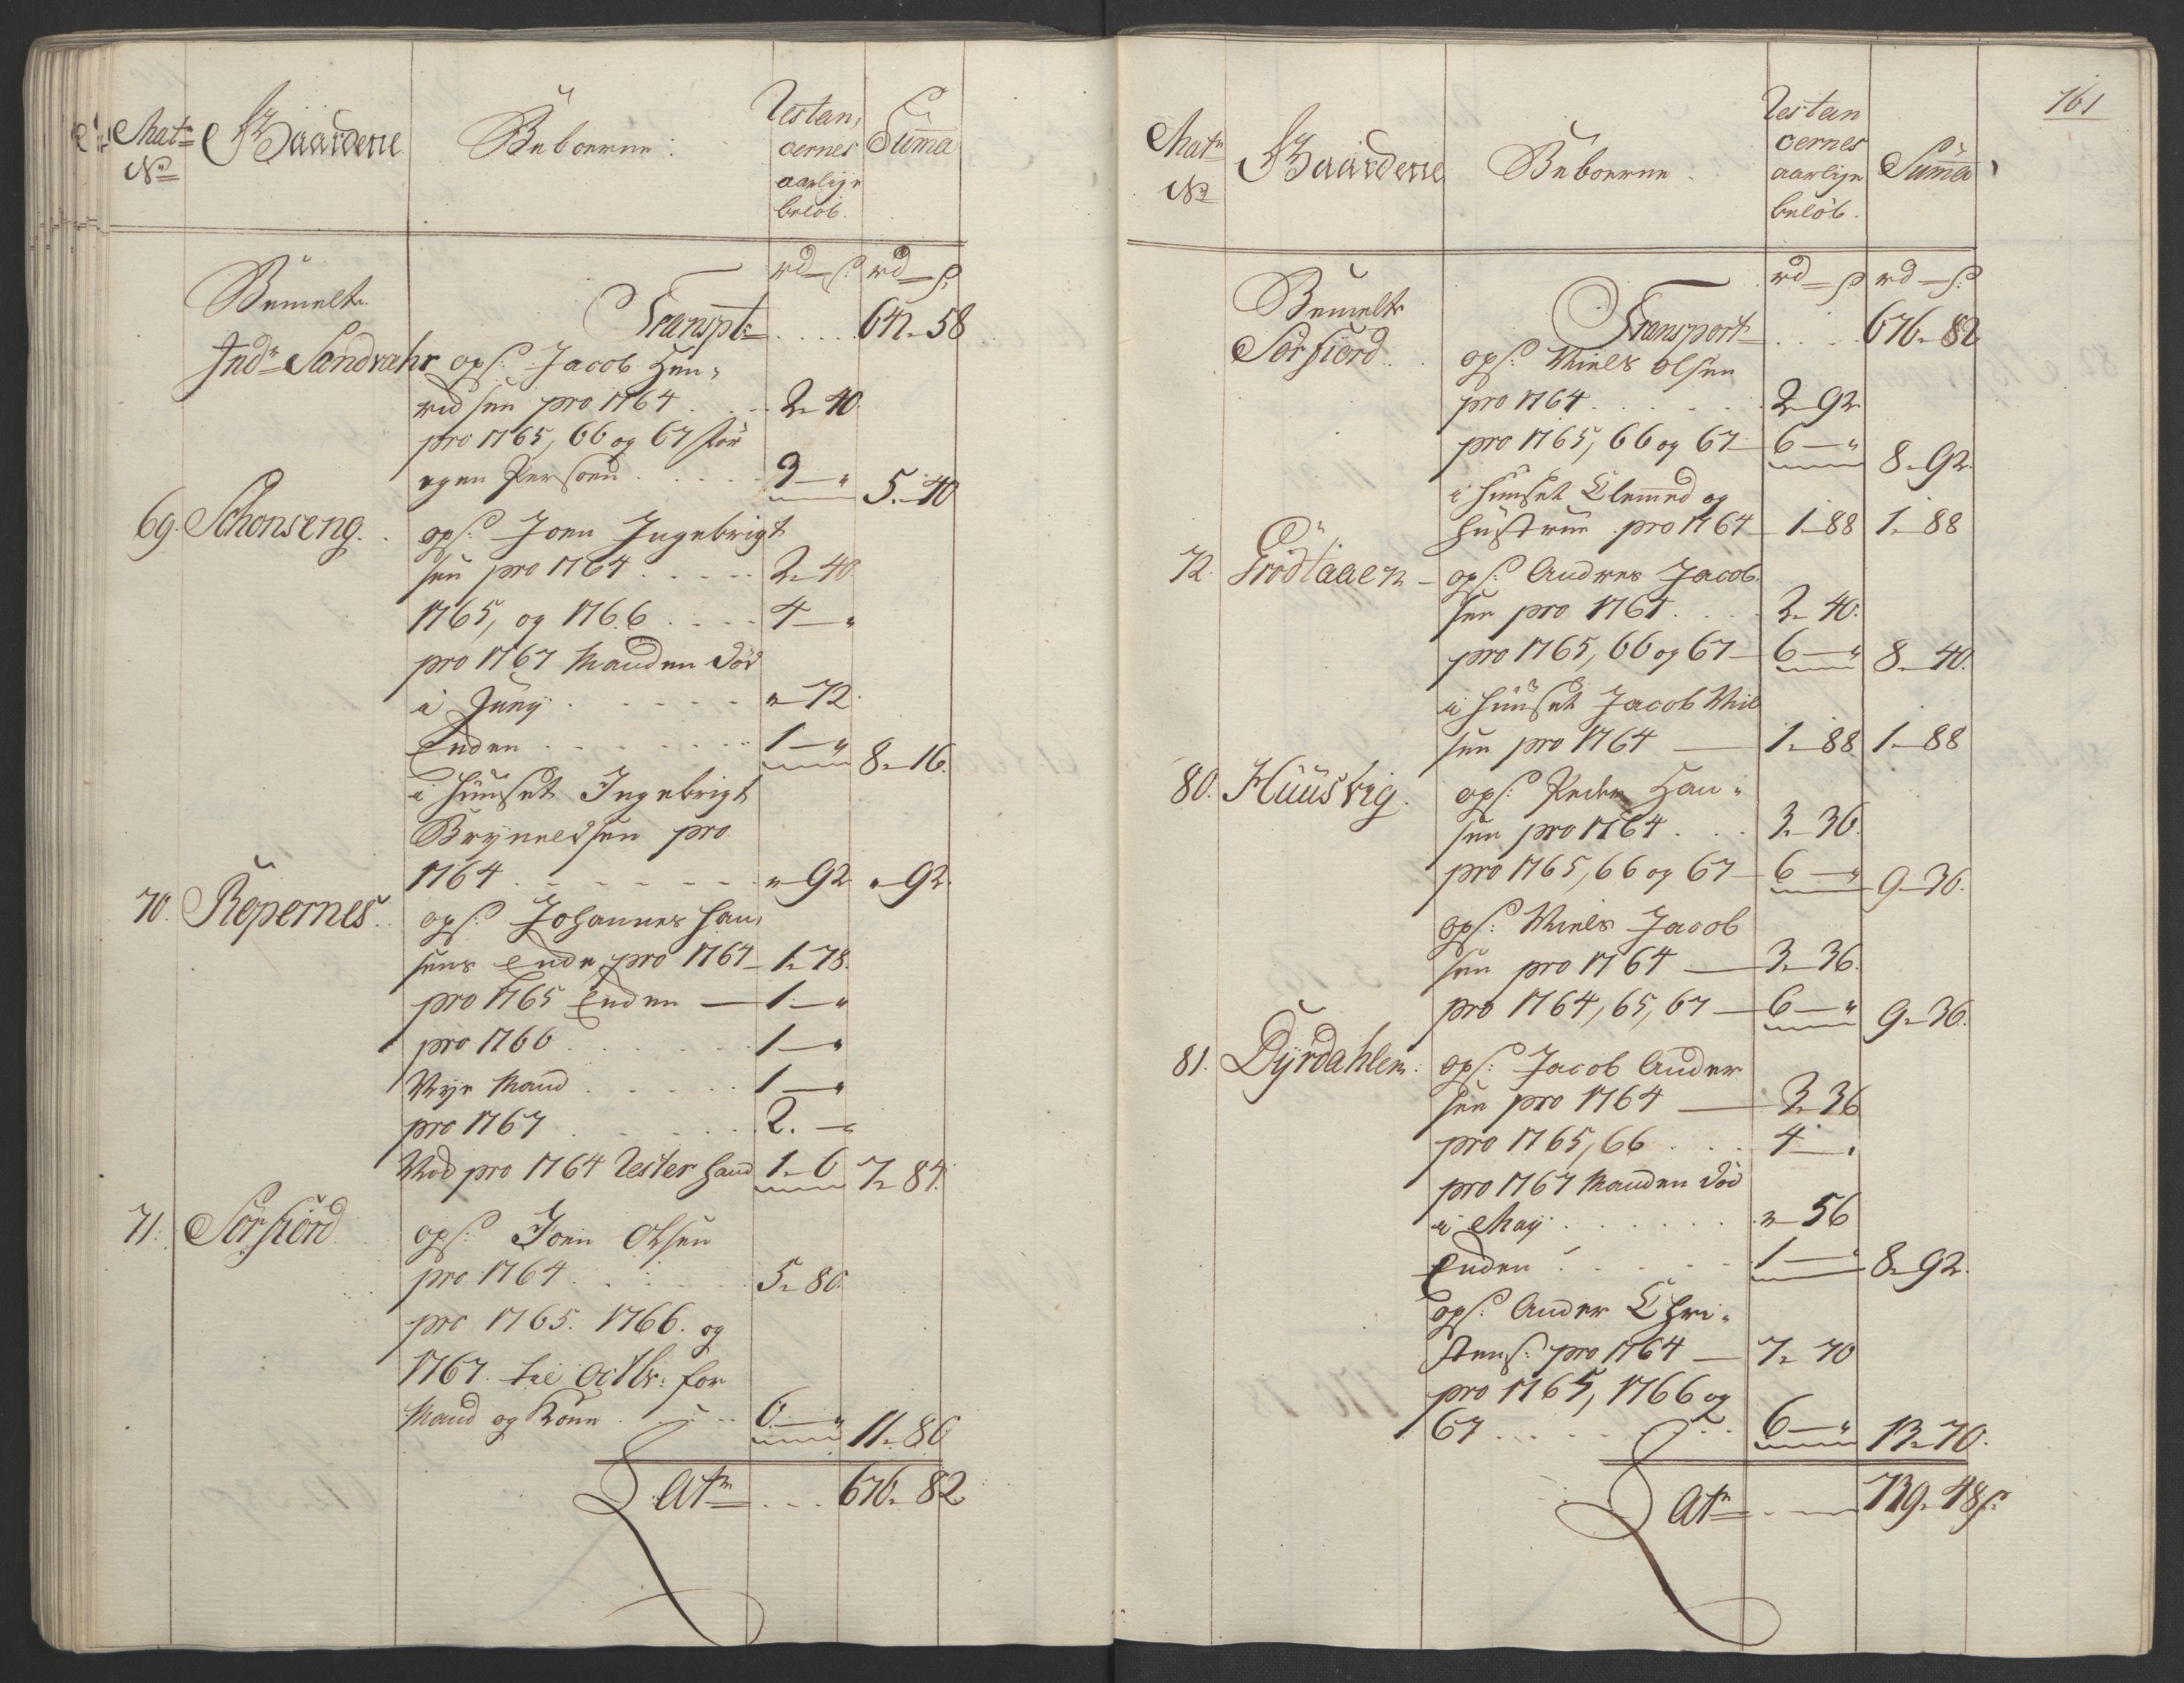 Matr:
No
Gaardene
Beboerne:
Restan,
cernes
aarlige
beløb.
Summa
rd – s: rd – s:
Bemelte
Transpt: . . . . 642 – 58
Indr Sandvahr ops: Jacob Hen,
ricksen pro 1764 . . . 2 – 40.
pro 1765, 66 og 67 for
egen Persoen . . . . 3 – " 5. – 40
69. Schonseng . . ops: Joen Ingebrigt
sen pro 1764 . . . . . 2 – 40
1765, og 1766 . . . . 4 – "
pro 1767 Manden død
i Junÿ . . . . . . " – 72.
Enken . . . . . . . 1 – " 8 – 16.
i Huuset Ingebrigt
Brÿnneldsen pro
1764 . . . . . . . " – 92 " – 92.
70. Røpernes . . ops: Johannes Han,
sens Enke pro 1764 – 1 – 78.
pro 1765 Enken – 1 – "
pro 1766 . . . . . . 1 – "
Nÿe Mand . . . . . 1 – "
pro 1767 . . . . . . 2. – "
Nok pro 1764 Rester hand 1 – 6 7 – 84.
71. Sørfiord . ops: Joen Olsen
pro 1764 . . . . . . 5 – 80.
pro 1765. 1766. og
1767. til Octbr: for
Mand og Kone . . . . 6 – " 11 – 80
At . . . 676 – 82
161
Matr
No
Gaardene
Beboerne
Restan
cernes
aarlige
beløb.
Summa
rd – s: rd – s:
Bemelte
Transport . . . . 676 – 82
Sørfiord . . ops: Niels Olsen
pro 1764 . . . . . . 2 – 92
pro 1765, 66 og 67 – 6 – " 8 – 92.
i Huuset Clemmed og
Hustrue pro 1764 – 1 – 88 1 – 88
72. Trødlaaen – ops: Andres Jacob.
sen pro 1764 . . . 2 – 40.
pro 1765, 66 og 67 – 6 – " 8 – 40.
i Huuset Jacob Niel
sen pro 1764 – 1 – 88 1 – 88
80. Huusvig . ops: Peder Han,
sen pro 1764 . . . 3 – 36.
pro 1765, 66 og 67 – 6 – " 9 – 36.
ops: Niels Jacob
sen pro 1764 – 3 – 36.
pro 1764, 65, 67 – 6 – " 9 – 36.
81. Dÿrdahlen . ops: Jacob Ander
sen pro 1764 – 3 – 36
pro 1765, 66 . . . 4 – "
pro 1767 Manden død
i Maÿ . . . . . . " – 56
Enken . . . . . . 1 – " 8 – 92.
ops: Ander Chri,
stens: pro 1764 – 7 – 70
pro 1765, 1766 og
67 . . . . . . . . 6 – " 13 – 70.
At . . . 739 – 48 s: